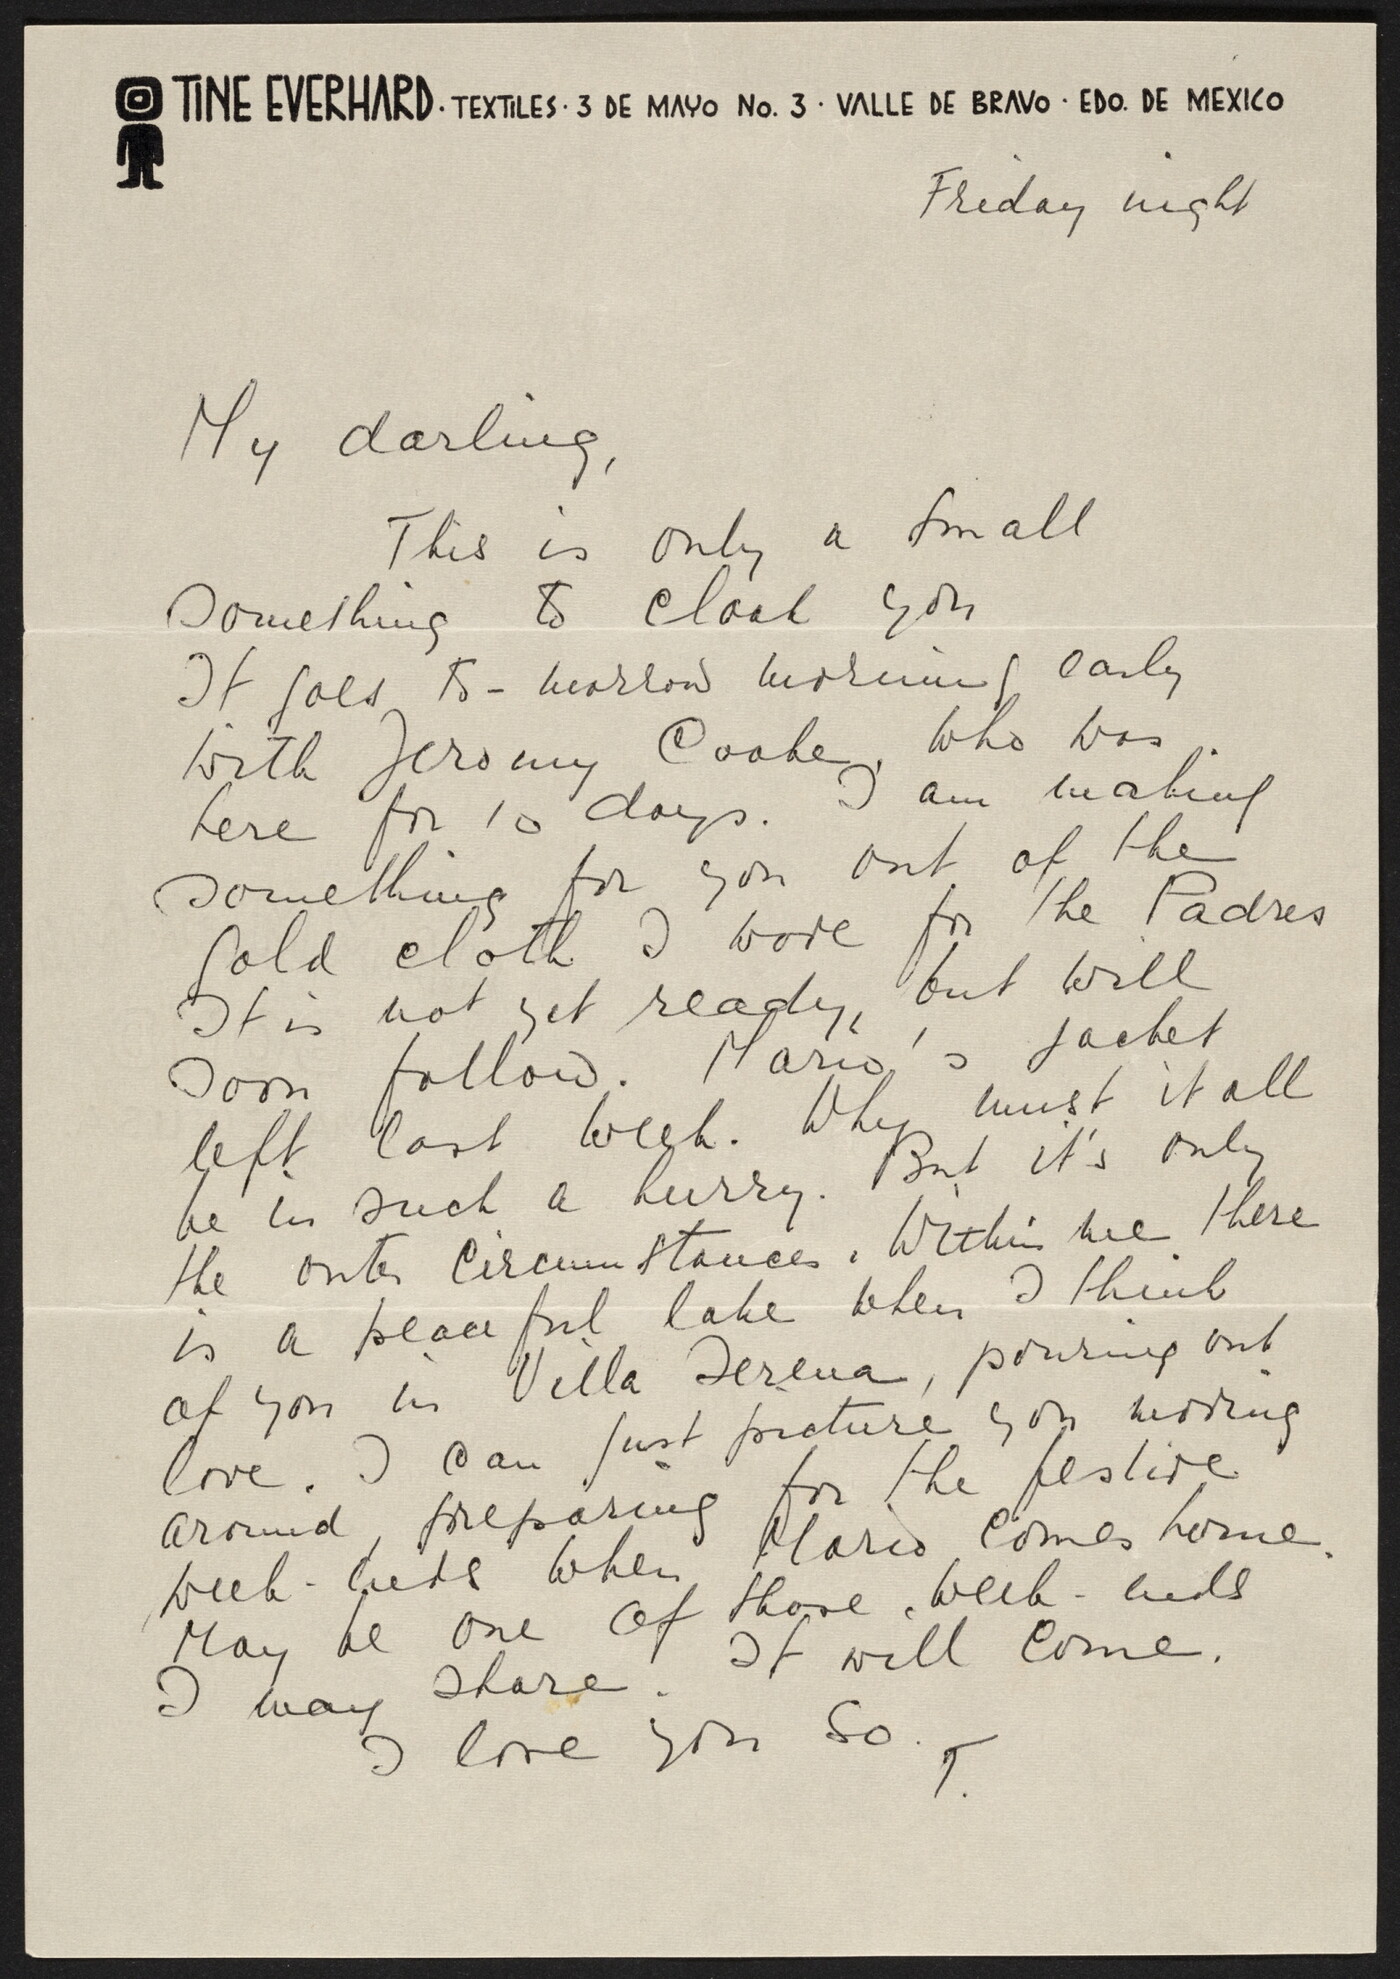 TINE EVERHARD · TEXTILES · 3 DE MAYO No. 3 · VALLE DE BRAVO · EDO. DE MEXICO
Friday night
My darling,
This is only a small
something to cloak you
It goes to-morrow morning early
with Jeromy Cooke, who was
here for 10 days. I am making
something for you out of the
gold cloth I wove for the Padres
It is not yet ready, but will
soon follow. Mario's jacket
left last week. Why must it all
be in such a hurry. But it's only
the outer circumstances. Within me there
is a peaceful lake when I think
of you in Villa Serena, pouring out
love. I can just picture you moving
around, preparing for the festive
week-ends when Mario comes home.
May be one of those week-ends
I may share. It will come.
I love you so. T.